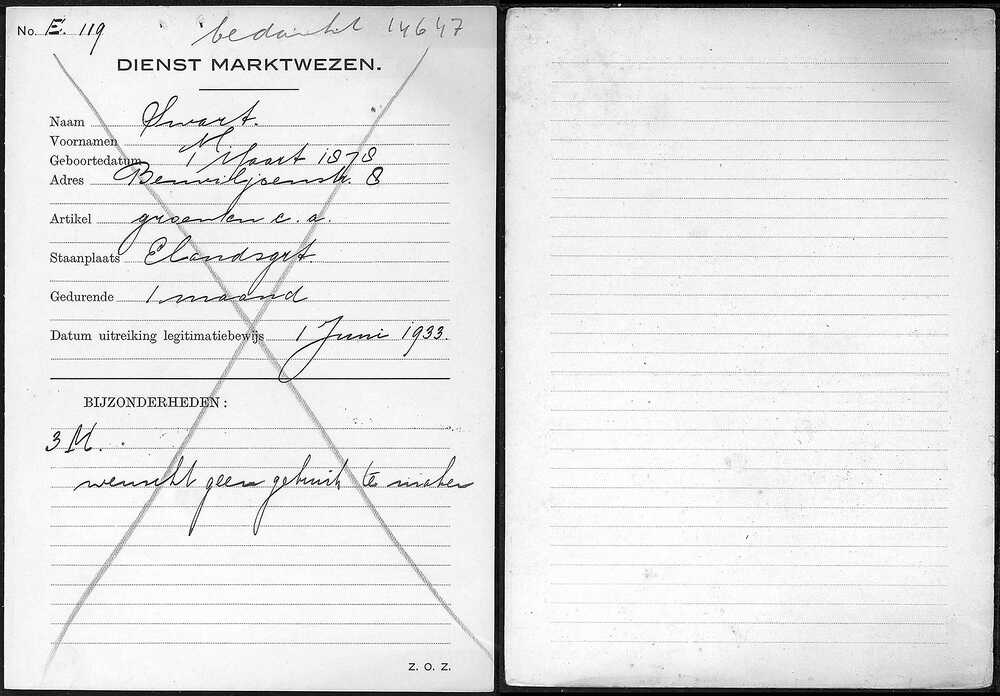 No. E. 119 bedankt 14647
DIENST MARKTWEZEN.
Naam Swart.
Voornamen M
Geboortedatum 1 Maart 1878
Adres Benviljoenstr. 8
Artikel groenten c.a.
Staanplaats Elandsgrt.
Gedurende 1 maand
Datum uitreiking legitimatiebewijs 1 Juni 1933.
BIJZONDERHEDEN:
3 M.
wenscht geen gebruik te maken
Z. O. Z.